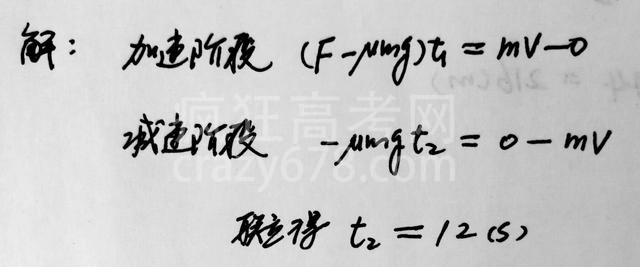 解： 加速阶段 (F-μmg)t₁ = mV-0
减速阶段 -μmgt₂ = 0-mV
联立得 t₂ = 12(s)
疯狂高考网
crazy678.com